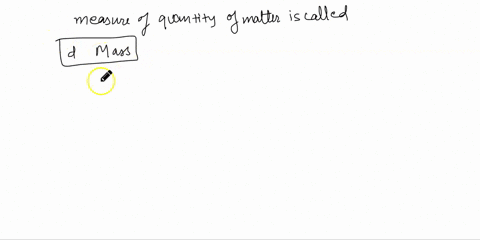 measure of quantity of matter is called
d Mass